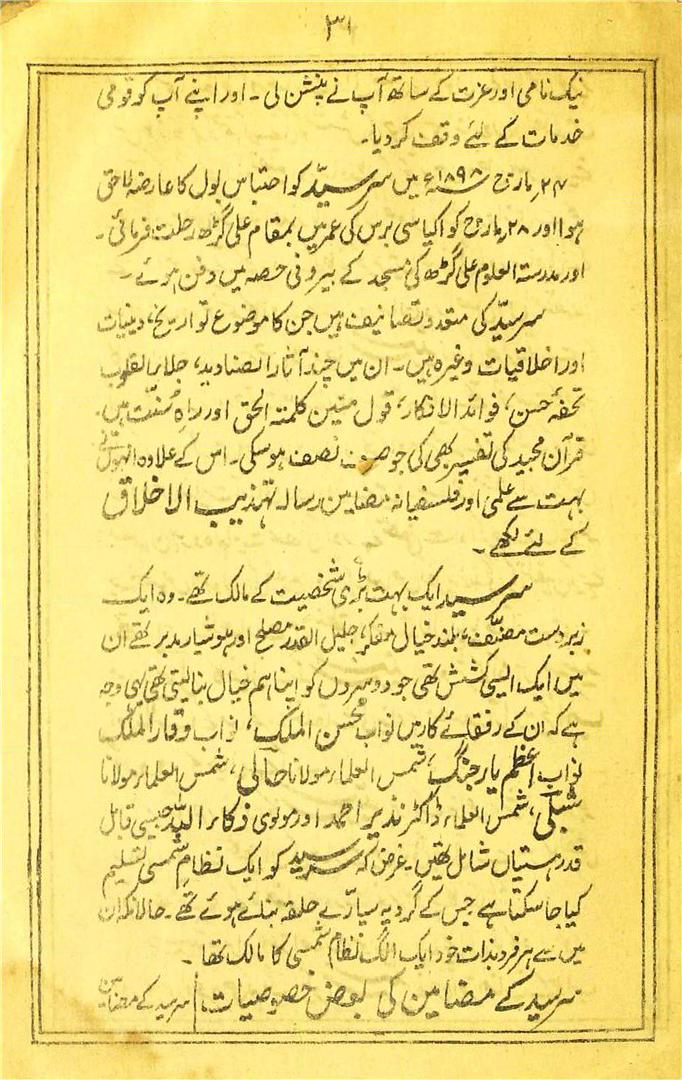 ۳۱
نیک نامی اور عزت کے ساتھ آپ نے پنشن لی۔ اور اپنے آپ کو قومی
خدمات کے لئے وقف کر دیا۔
۲۴؍ مارچ ۱۸۹۸ء میں سرسیّد کو احتباس بول کا عارضہ لاحق
ہوا اور ۲۸؍ مارچ کو اکیاسی برس کی عمر میں بمقام علی گڑھ رحلت فرمائی۔
اور مدرستہ العلوم علی گڑھ کی مسجد کے بیرونی حصہ میں دفن ہوئے۔
سرسیّد کی متعدد تصانیف ہیں جن کا موضوع تواریخ، دینیات
اور اخلاقیات وغیرہ ہیں۔ ان میں چند آثار الصنادید، جلاء القلوب
تحفۂ حسن، فوائد الافکار، قول متین کلمتہ الحق اور راہِ سُنّت ہیں۔
قرآن مجید کی تفسیر بھی کی جو صرف نصف ہو سکی۔ اس کے علاوہ انہوں نے
بہت سے علمی اور فلسفیانہ مضامین رسالہ تہذیب الاخلاق
کے لئے لکھے۔
سرسید ایک بہت بڑی شخصیت کے مالک تھے۔ وہ ایک
زبردست مصنّف، بلند خیال مفکر، جلیل القدر مصلح اور ہوشیار مدبر تھے ان
میں ایک ایسی کشش تھی جو دوسروں کو اپنا ہم خیال بنا لیتی تھی یہی وجہ
ہے کہ ان کے رفقائے کار میں نواب محسن الملک، نواب وقار الملک
نواب اعظم یار جنگ، شمس العلماء مولانا حالی، شمس العلماء مولانا
شبلی، شمس العلماء ڈاکٹر نذیر احمد اور مولوی ذکاء اللہ جیسی قابل
قدر ہستیاں شامل تھیں۔ غرض کہ سرسید کو ایک نظام شمسی تسلیم
کیا جا سکتا ہے جس کے گرد یہ سیارے حلقہ بنائے ہوئے تھے۔ حالانکہ ان
میں سے ہر فرد بذات خود ایک الگ نظام شمسی کا مالک تھا۔
سرسید کے مضامین کی بعض خصوصیات | سرسید کے مضامین